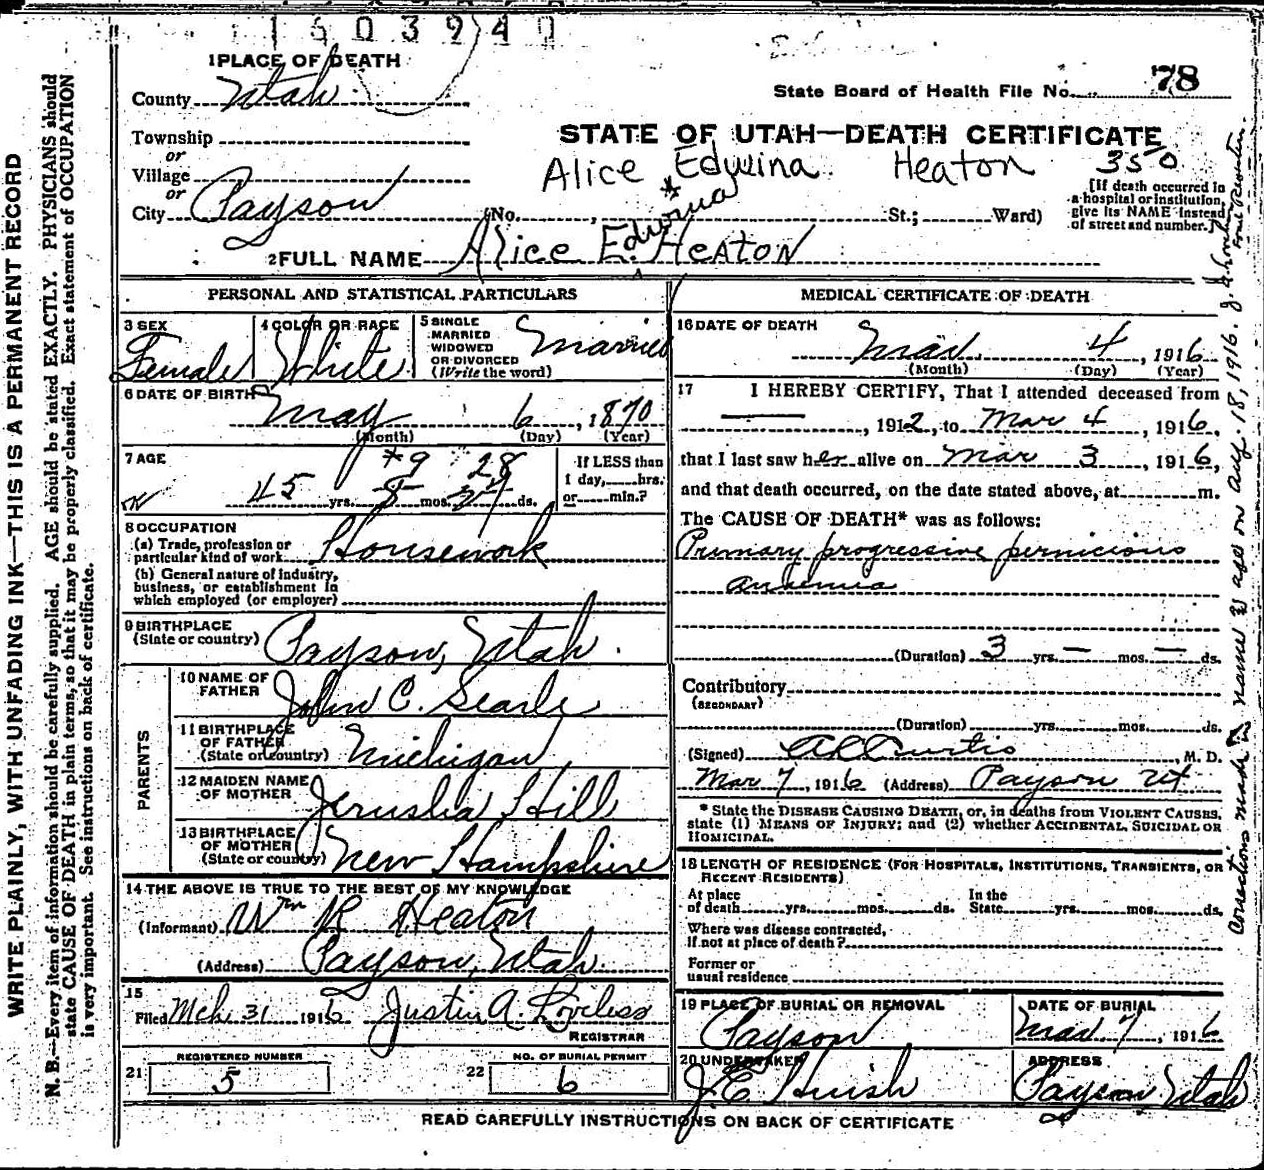 1603940
1 PLACE OF DEATH
County Utah
State Board of Health File No. 78
Township
or
Village
or
City Payson
STATE OF UTAH—DEATH CERTIFICATE
Alice Edwina Heaton 350
(No. , St.; Ward)
[If death occurred in
a hospital or institution,
give its NAME instead
of street and number.]
2 FULL NAME Alice E. Heaton
* Edwina
PERSONAL AND STATISTICAL PARTICULARS
3 SEX
Female
4 COLOR OR RACE
White
5 SINGLE
MARRIED
WIDOWED
OR DIVORCED
(Write the word)
Married
6 DATE OF BIRTH
May 6, 1870
(Month) (Day) (Year)
7 AGE
*9 28
45 yrs. mos. ds.
If LESS than
1 day, hrs.
or min.?
8 OCCUPATION
(a) Trade, profession or
particular kind of work Housework
(b) General nature of industry,
business, or establishment in
which employed (or employer)
9 BIRTHPLACE
(State or country) Payson, Utah.
PARENTS
10 NAME OF
FATHER John C. Searle
11 BIRTHPLACE
OF FATHER
(State or country) Michigan
12 MAIDEN NAME
OF MOTHER Jerusha Hill
13 BIRTHPLACE
OF MOTHER
(State or country) New Hampshire
14 THE ABOVE IS TRUE TO THE BEST OF MY KNOWLEDGE
(Informant) Wm R Heaton
(Address) Payson, Utah.
15
Filed Mch 31 1916 Justin A. Loveless
REGISTRAR
REGISTERED NUMBER
21 5
NO. OF BURIAL PERMIT
22 6
MEDICAL CERTIFICATE OF DEATH
16 DATE OF DEATH
Mar 4, 1916
(Month) (Day) (Year)
17 I HEREBY CERTIFY, That I attended deceased from
, 1912, to Mar 4, 1916,
that I last saw her alive on Mar 3, 1916,
and that death occurred, on the date stated above, at m.
The CAUSE OF DEATH* was as follows:
Primary progressive pernicious
anaemia
(Duration) 3 yrs. — mos. — ds.
Contributory
(SECONDARY)
(Duration) yrs. mos. ds.
(Signed) A L Curtis, M. D.
Mar 7, 1916 (Address) Payson Ut
* State the DISEASE CAUSING DEATH, or, in deaths from VIOLENT CAUSES,
state (1) MEANS OF INJURY; and (2) whether ACCIDENTAL, SUICIDAL OR
HOMICIDAL.
18 LENGTH OF RESIDENCE (FOR HOSPITALS, INSTITUTIONS, TRANSIENTS, OR
RECENT RESIDENTS)
At place
of death yrs. mos. ds.
In the
State yrs. mos. ds.
Where was disease contracted,
If not at place of death?
Former or
usual residence
19 PLACE OF BURIAL OR REMOVAL
Payson
DATE OF BURIAL
Mar 7, 1916
20 UNDERTAKER
J E Huish
ADDRESS
Payson Utah
READ CAREFULLY INSTRUCTIONS ON BACK OF CERTIFICATE
WRITE PLAINLY, WITH UNFADING INK—THIS IS A PERMANENT RECORD
N. B.—Every item of information should be carefully supplied. AGE should be stated EXACTLY. PHYSICIANS should
state CAUSE OF DEATH in plain terms, so that it may be properly classified. Exact statement of OCCUPATION
is very important. See instructions on back of certificate.
Corrections made in name & age on Aug. 18, 1916.